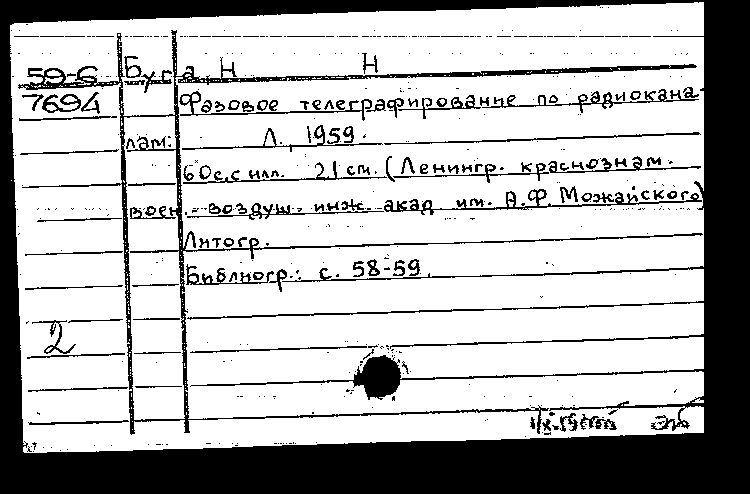 59-6 Буга, Н Н
7694 Фазовое телеграфирование по радиокана-
лам. Л., 1959.
60с. с илл. 21 см. (Ленингр. краснознам.
воен.-воздуш. инж. акад. им. А.Ф. Можайского)
Литогр.
Библиогр.: с. 58-59.
2